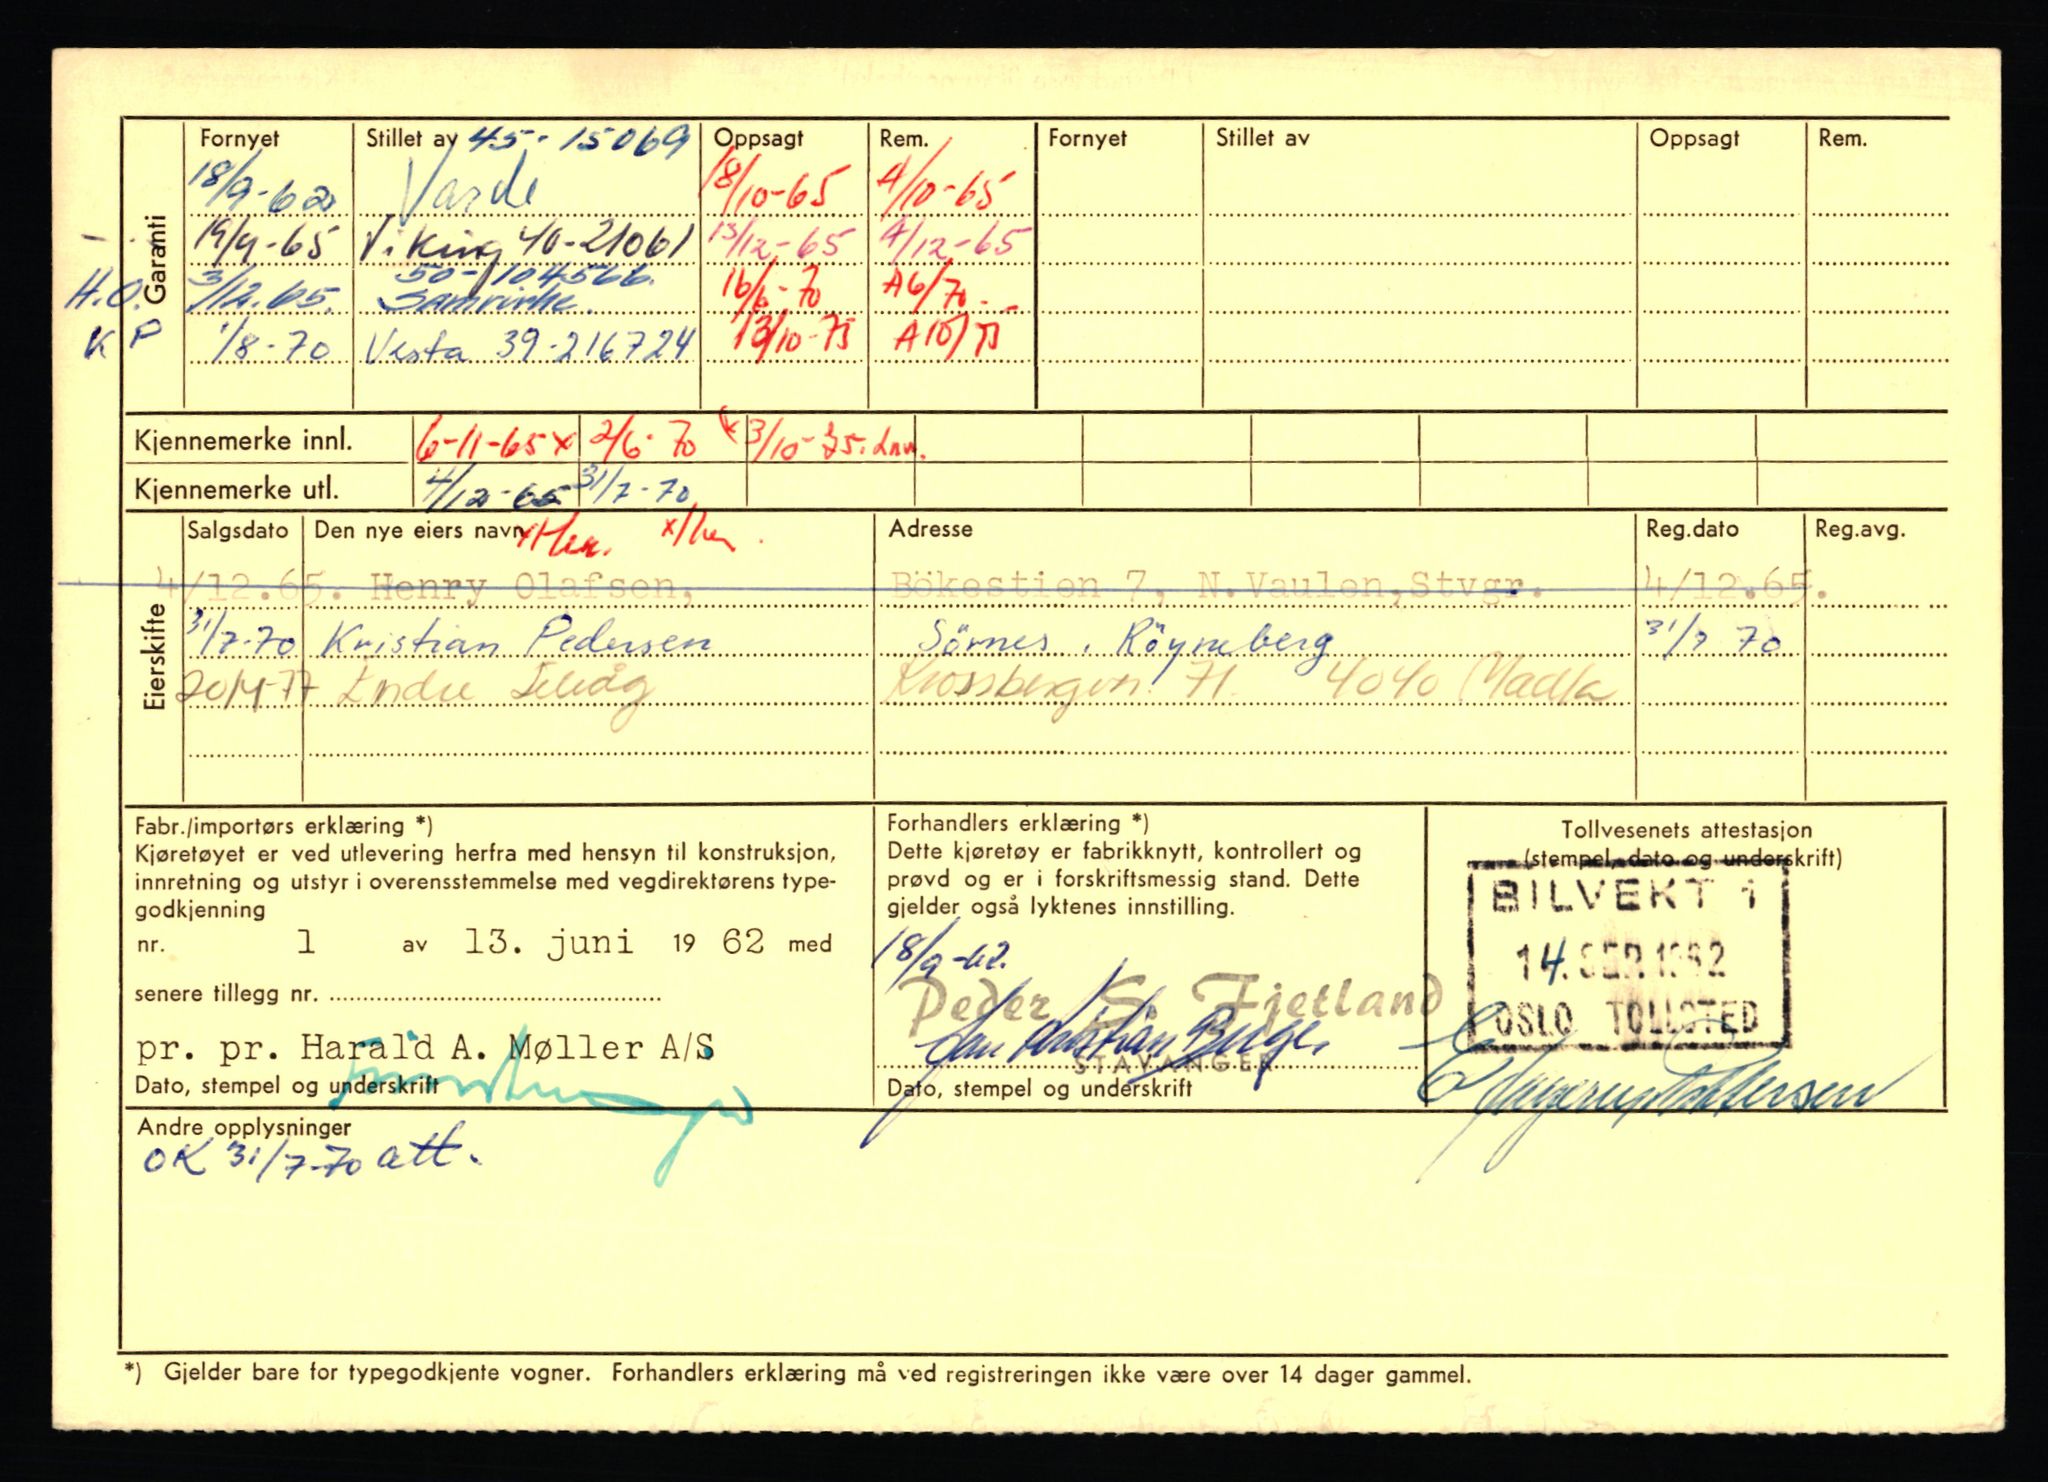 Garanti
Fornyet Stillet av 45-15069 Oppsagt Rem. Fornyet Stillet av Oppsagt Rem.
18/9-62 Varde 18/10-65 A/10-65
19/9-65 Viking 40-21061 13/12-65 A/12-65
50-104566.
H.O. 3/12.65. Samvirke. 16/6-70 A6/70
K P 1/8-70 Vesta 39-216724 13/10-75 A10/75
Kjennemerke innl. 6-11-65x 2/6-70 3/10-75.
Kjennemerke utl. 4/12-65 31/7-70
Eierskifte
Salgsdato Den nye eiers navn Adresse Reg.dato Reg.avg.
4/12.65. Henry Olafsen, Bökestien 7, N.Vaulen,Stvgr. 4/12.65.
31/7-70 Kristian Pedersen Sörnes, Röyneberg 31/7 70
Endre 71. 4040 Madla
Fabr./importørs erklæring *)
Kjøretøyet er ved utlevering herfra med hensyn til konstruksjon,
innretning og utstyr i overensstemmelse med vegdirektørens type-
godkjenning
nr. 1 av 13. juni 19 62 med
senere tillegg nr.
pr. pr. Harald A. Møller A/S
Dato, stempel og underskrift
Forhandlers erklæring *)
Dette kjøretøy er fabrikknytt, kontrollert og
prøvd og er i forskriftsmessig stand. Dette
gjelder også lyktenes innstilling.
18/9-62.
Peder S. Fjetland
STAVANGER
Dato, stempel og underskrift
Tollvesenets attestasjon
(stempel, dato og underskrift)
BILVEKT 1
14. SEP. 1962
OSLO TOLLSTED
Andre opplysninger
OK 31/7-70 att.
*) Gjelder bare for typegodkjente vogner. Forhandlers erklæring må ved registreringen ikke være over 14 dager gammel.